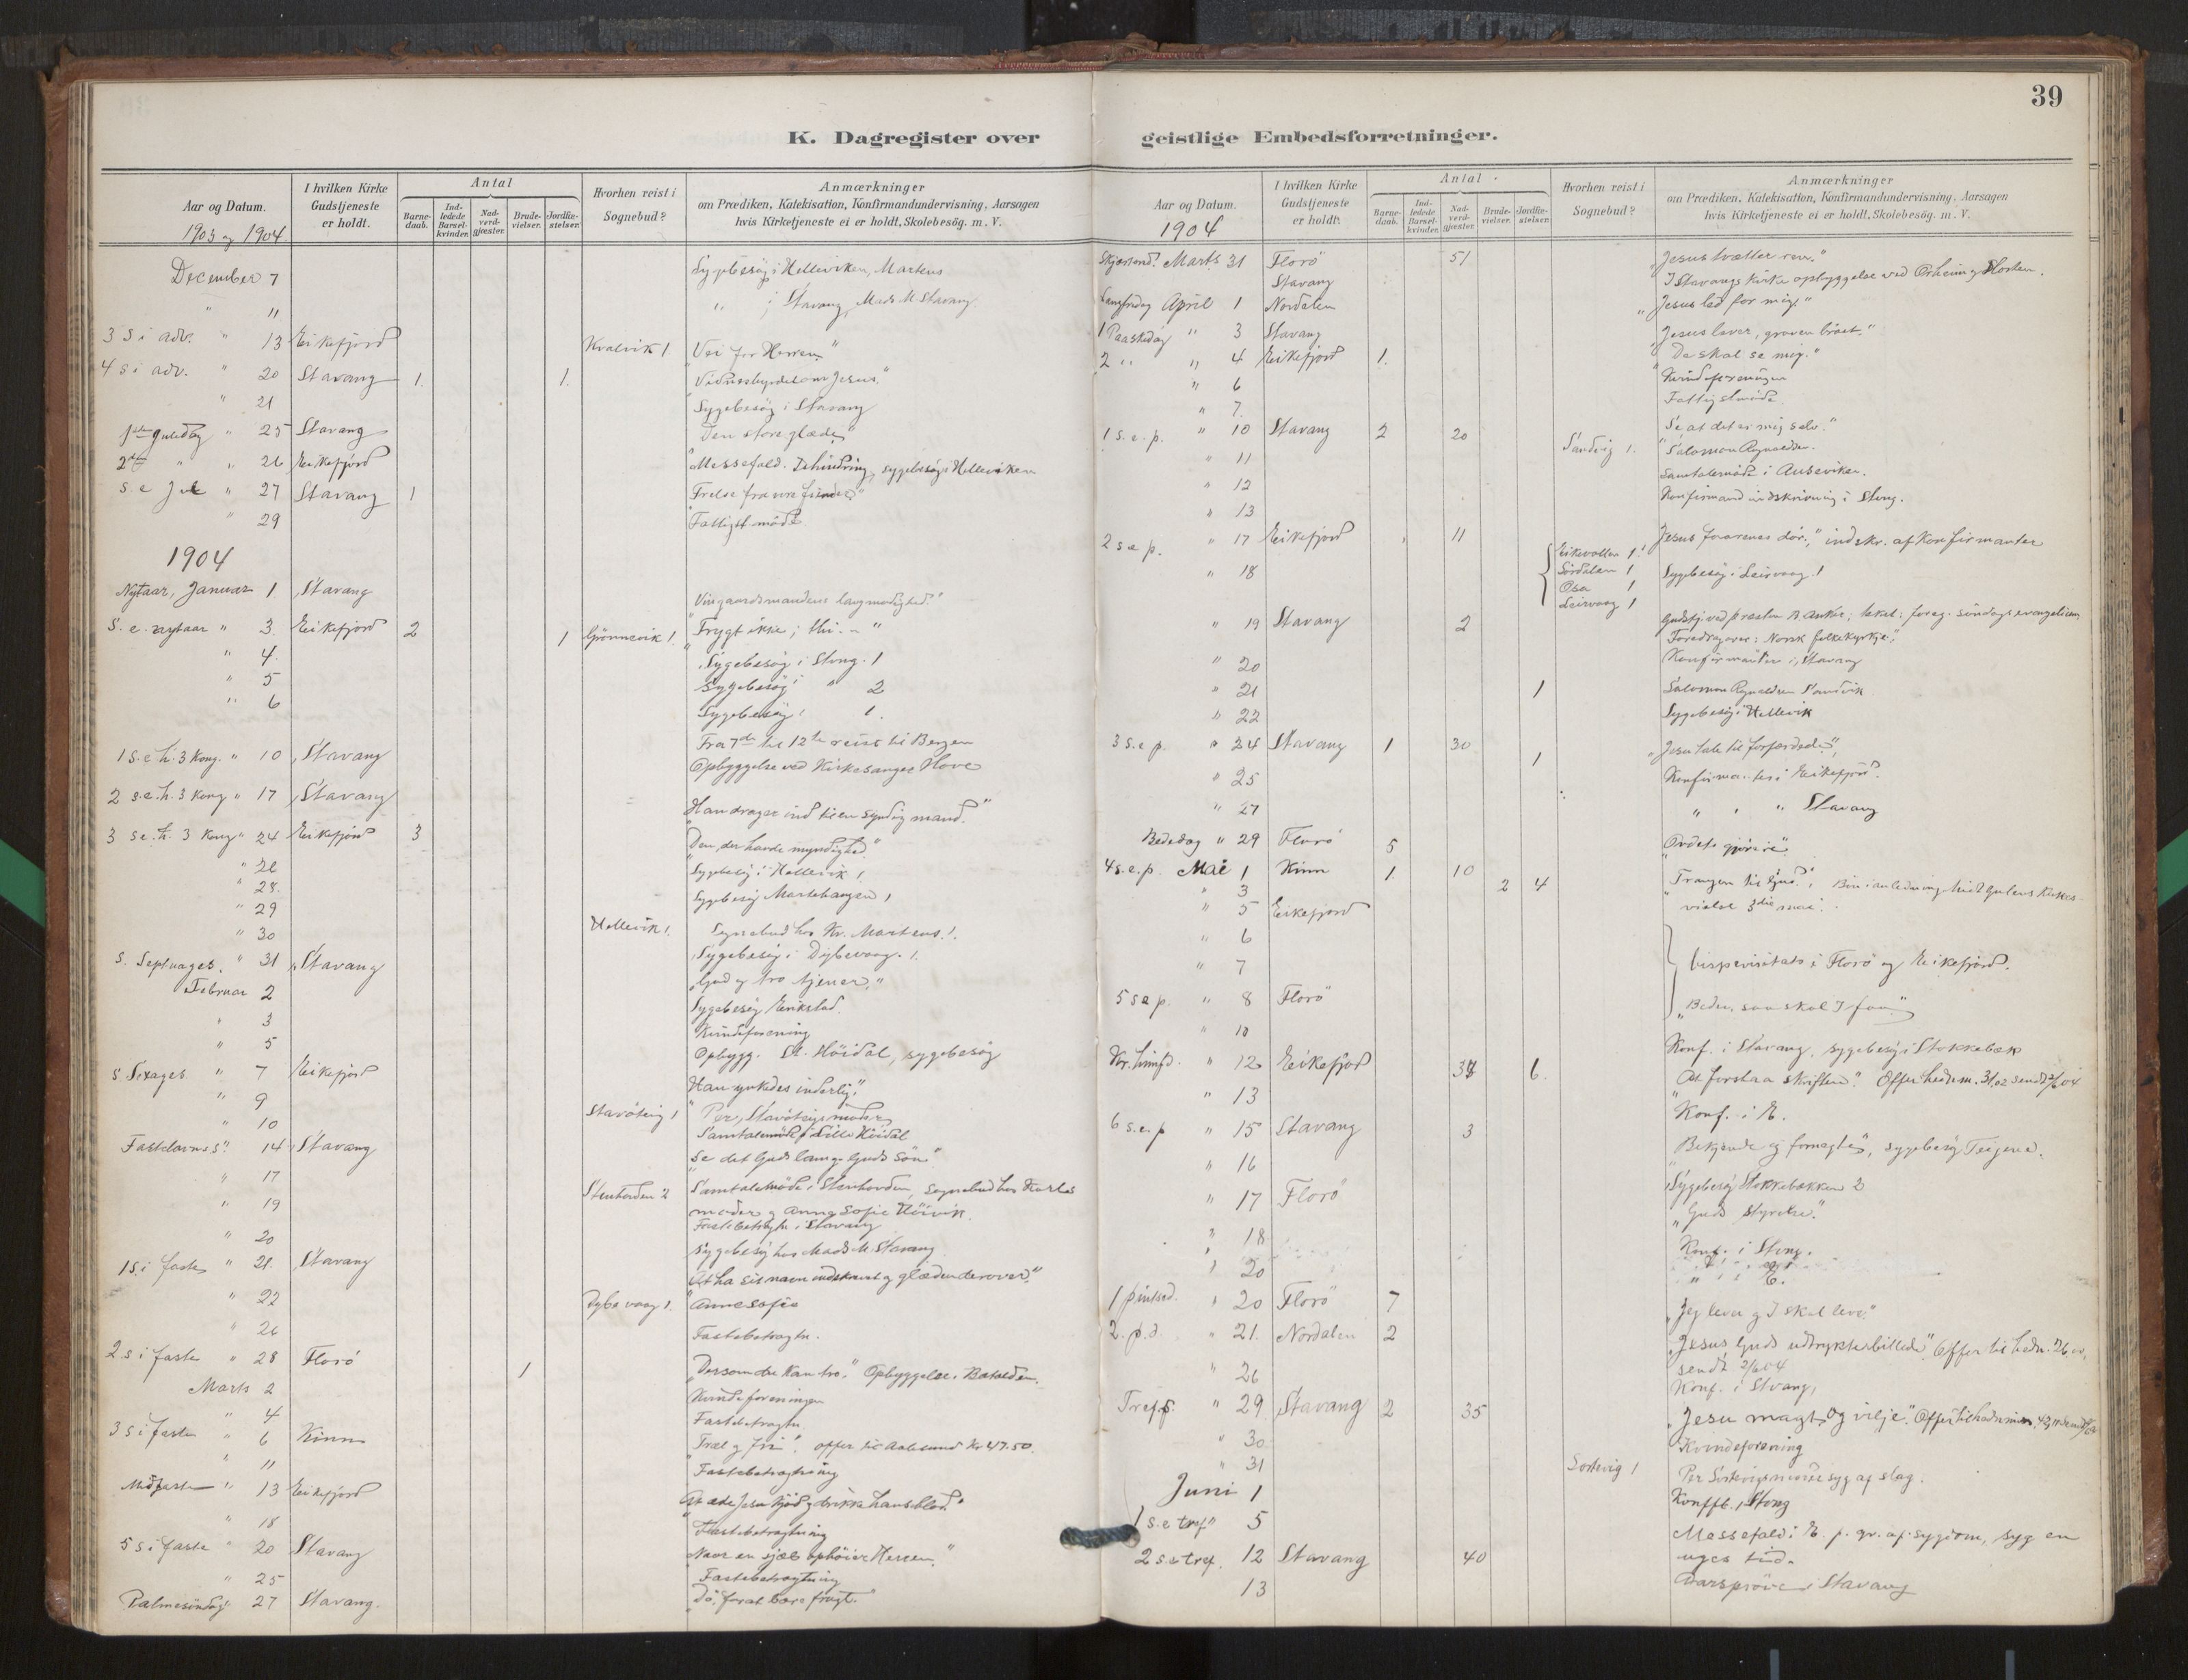 39
K. Dagregister over geistlige Embedsforretninger.
Aar og Datum.
1903 og 1904
I hvilken Kirke Gudstjeneste er holdt.
Antal
Barnedaab.
Indledede Barselkvinder.
Nadverdgjæster.
Brudevielser.
Jordfæstelser.
Hvorhen reist i Sognebud?
Anmærkninger
om Prædiken, Katekisation, Konfirmandundervisning, Aarsagen
hvis Kirketjeneste ei er holdt, Skolebesøg. m. V.
December 7 Sygebesøg i Helleviken, Martens
" 11 " i Stavang, Mads M. Stavang.
3 S i adv. " 13 Eikefjord Kvalvik 1 "Vei for Herren"
4 s i adv. " 20 Stavang 1. 1. "Vidnesbyrdet om Jesus."
" 21 Sygebesøg i Stavang
1ste Juledag " 25 Stavang "Den store glæde"
2den " " 26 Eikefjord Messefald. Behindring, sygebesøg i Helleviken
S. e Jul " 27 Stavang 1 "Frelse fra vore fiender"
" 29 Fattigst. møde
1904
Nytaar, Januar 1 Stavang Vingaardsmandens langmodighed."
S. e. nytaar " 3. Eikefjord 2 1 Grönnevik 1. "Frygt ikke; thi - - "
" 4. Sygebesøg i Stong. 1
" 5 Sygebesøg i " 2
" 6 Sygebesøg 1.
Fra 7de til 12te reist til Bergen
1 s. e h. 3 Kong. " 10 Stavang Opbyggelse ved Kirkesanger Hove
2 s.e.h. 3 Kong " 17 Stavang "Han drager ind til en syndig mand."
3 s e. h. 3 Kong " 24 Eikefjord 3 "Den, der havde myndighed."
" 26 Sygebesøg i Hellevik 1
" 28. Sygebesøg Martehaugen 1
" 29
" 30 Hellevik 1. Sognebud hos Kr. Martens. 1.
Sygebesøg i Dybevaag. 1.
S. Septuages. " 31 Stavang "God og tro tjener,"
Februar 2 Sygebesøg Erikstad.
" 3 Kvindeforening
" 5 Opbygg. St. Höidal, sygebesøg
S Sexages " 7 Eikefjord "Han ynkedes inderlig,"
" 9 Stavöteig 1 Per, Stavöteigs moder
" 10 Samtalemøde i Lille Höidal
Fastelavnss. " 14 Stavang "Se det Guds lam og Guds Sön"
" 17 Stenhovden 2 Samtalemøde i Stenhovden, Sognebud hos Karles
" 19 moder og Anna Sofie Höivik.
Fastebetragtn. i Stavang
" 20 Sygebesøg hos Mads M. Stavang
1 s. i faste " 21. Stavang "At ha sit navn indskrevet og glæden derover."
" 22 Dybevaag 1. Anne Sofie
" 26 Fastebetragtn.
2 s i faste " 28 Florö 1 "Dersom du kan tro." Opbyggelse. Batalden.
Marts 2 Kvindeforeningen
" 4 Fastebetragtn.
3 s i fasten " 6 Kinn "Træl og fri". offer til Aalesund Kr 47.50.
" 11 Fastebetragtning
Midfaste " 13 Eikefjord "At æde Jesu kjöd og drikke hans blod."
" 18 Fastebetragtning
5 s i faste " 20 Stavang "Naar en sjæl ophöier Herren."
" 25 Fastebetragtning
Palmesöndag " 27 Stavang. "Dö, forat bære frugt."
Aar og Datum.
1904
I hvilken Kirke Gudstjeneste er holdt.
Antal.
Barnedaab.
Indledede Barselkvinder.
Nadverdgjæster.
Brudevielser.
Jordfæstelser.
Hvorhen reist i Sognebud?
Anmærkninger
om Prædiken, Katekisation, Konfirmandundervisning, Aarsagen
hvis Kirketjeneste ei er holdt, Skolebesøg. m. V.
Skjærtord. Marts 31 Florö 51 "Jesus tvætter ren."
Stavang I Stavangs kirke opbyggelse ved Orheim og Horten.
Langfredag April 1 Nordalen "Jesus led for mig"
1 Paaskedag " 3 Stavang "Jesus lever, graven bröst."
2 " " 4 Eikefjord 1. "De skal se mig."
" 6 Kvindeforeningen
" 7. Fattigstmøde.
1 s. e. p. " 10 Stavang 2 20 "Se at det er mig selv."
" 11 Sandvig 1. Salomon Rognaldsen.
" 12 Samtalemøde i Auseviken.
" 13 Konfirmand indskrivning i Stong.
2 s e p. " 17 Eikefjord 11 "Jesus faarenes dör," indskr. af Konfirmanter
" 18 Eikevollen 1
Sørdalen 1
Osa 1
Leirvaag 1 Sygebesøg i Leirvaag. 1
" 19 Stavang 2 Gudstj. ved presten B. Anker; tekst: foreg. søndags evangelium
Foredrag over: "Norsk folkekyrkje".
" 20 Konfirmanter i Stavang
" 21 1 Salomon Rognaldsen Sandvik
" 22 Sygebesøg Hellevik
3 s. e p. " 24 Stavang 1 30 1 "Jesu tale til forfærdede",
" 25 Konfirmanter i Eikefjord.
" 27 " " " Stavang
Bededag " 29 Florö 5 "Ordets gjörere"
4 s. e. p. Mai 1 Kinn 1. 10 "Trangen til Gud". Bön i anledning Midtgulens Kirkes-
" 3 2 4 vielse 3die mai.
" 5 Eikefjord
" 6
" 7 bispevisitats i Florö og Eikefjord.
5 s e p. " 8 Florö "Beder, saa skal I faa"
" 10 Konf. i Stavang, sygebesøg i Stokkebæk
Kr. himf. " 12 Eikefjord 6. "At forstaa skriften". Offer hedn.m. 31,02 sendt 2/6 04
" 13 Konf. i E.
6 s. e. p " 15 Stavang 3 "Bekjende og fornegte", sygebesøg Teigene.
" 16 Sygebesøg Stokkebækken 2
" 17 Florö "Guds styrelse."
" 18 Konf. i Stong.
" 20 " " E.
1 pintsed. " 20 Florö 7 "Jeg lever og I skal leve"
2. p. d. " 21. Nordalen 2 "Jesus Guds udtrykte billede". Offer til hedn.
sendt 2/6 04
" 26 Konf. i Stvang,
Tref. s. " 29 Stavang 2 35 "Jesu magt og vilje". Offer til hedn.
" 30 Kvindeforening
" 31 Sortevig 1 Per Sortevigs moder syg af slag.
Juni 1 Konffb. i Stong
1 s. e tref " 5 Messefald i E. p. gr. af sygdom, syg en
2 s. e tref. 12 Stavang 40 uges tid.
13 Aarsprøve i Stavang